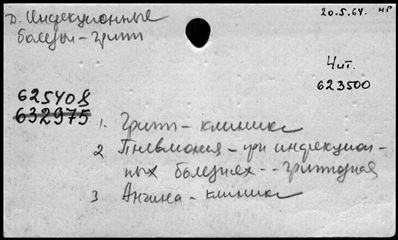 Д. Инфекционные
болезни - грипп
20.5.64. нР
Чит.
623500
625408
632975
1. Грипп - клинике
2 Пневмония - при инфекцион-
ных болезнях -- гриппозная
3 Ангина - клинике